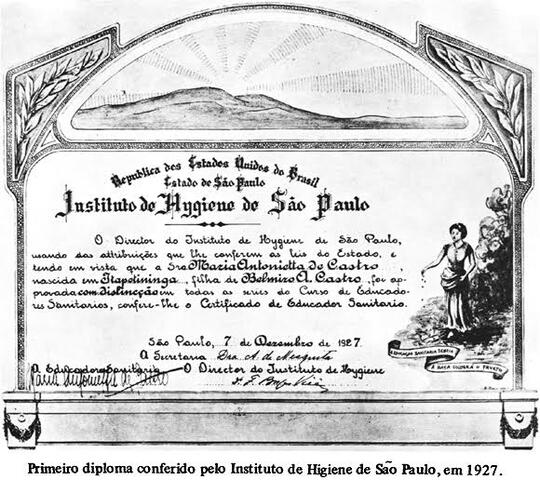 Republica dos Estados Unidos do Brasil
Estado de São Paulo
Instituto de Hygiene de São Paulo
O Director do Instituto de Hygiene de São Paulo,
usando das attribuições que lhe conferem as leis do Estado, e
tendo em vista que a Sra Maria Antonietta de Castro,
nascida em Itapetininga, filha de Belmiro A. Castro, foi ap-
provada com distincção em todas as series do Curso de Educado-
res Sanitarios, confere-lhe o Certificado de Educador Sanitario.
São Paulo, 7 de Dezembro de 1927.
A Secretaria Dra. A. de Mesquita
A Educadora Sanitaria O Director do Instituto de Hygiene
A EDUCAÇÃO SANITARIA SEMEIA
A RAÇA COLHERÁ O FRUCTO
Primeiro diploma conferido pelo Instituto de Higiene de São Paulo, em 1927.